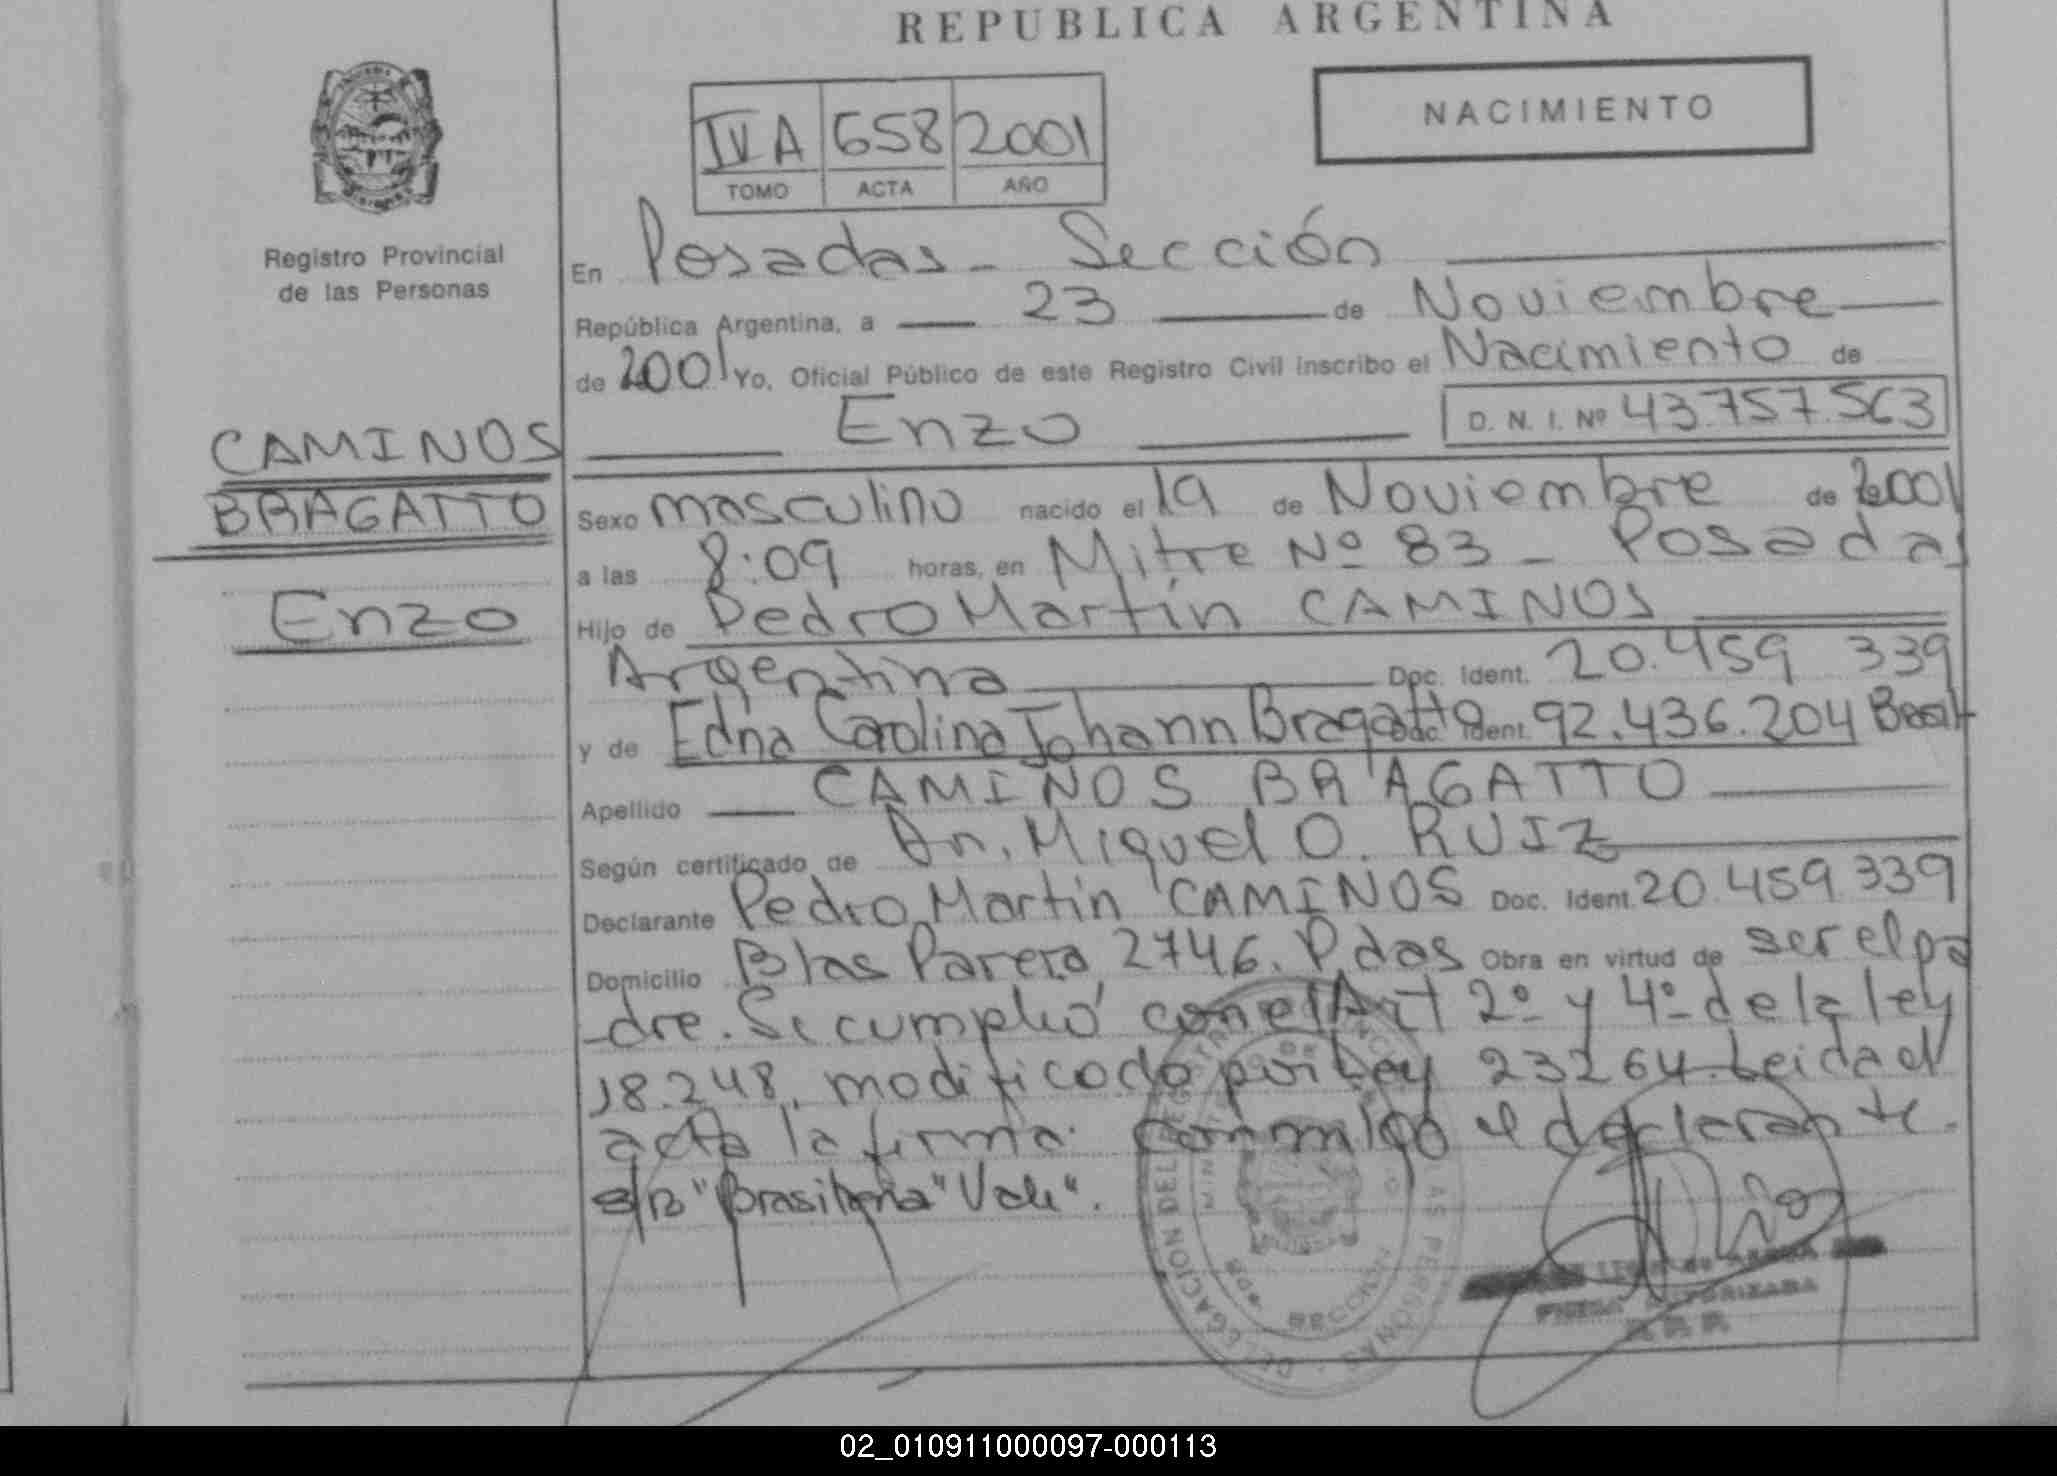 REPUBLICA ARGENTINA
NACIMIENTO
IV A 658 2001
TOMO ACTA AÑO
Registro Provincial
de las Personas
CAMINOS
BRAGATTO
Enzo
En Posadas - Sección
República Argentina, a 23 de Noviembre
de 2001 Yo, Oficial Público de este Registro Civil inscribo el Nacimiento de
Enzo D. N. I. Nº 43.757.563
Sexo masculino nacido el 19 de Noviembre de 2001
a las 8:09 horas, en Mitre Nº 83 - Posadas
Hijo de Pedro Martín CAMINOS
Argentina Doc. Ident. 20.459 339
y de Edna Carolina Johann Bragatto Doc. Ident. 92.436.204
Apellido CAMINOS BRAGATTO
Según certificado de Miguel O. RUIZ
Declarante Pedro Martín CAMINOS Doc. Ident. 20.459.339
Domicilio Blas Parera 2746. Pdas Obra en virtud de ser el pa
dre. Se cumplió con el Art 2º y 4º de la ley
18.248, modificado por Ley 23264. Leida el
acta la firma conmigo el declarante.
s/B "Brasileña" Vale".
DELEGACION DEL REGISTRO PROVINCIAL DE LAS PERSONAS
FIRMA AUTORIZADA
R.P.P.
02_010911000097-000113